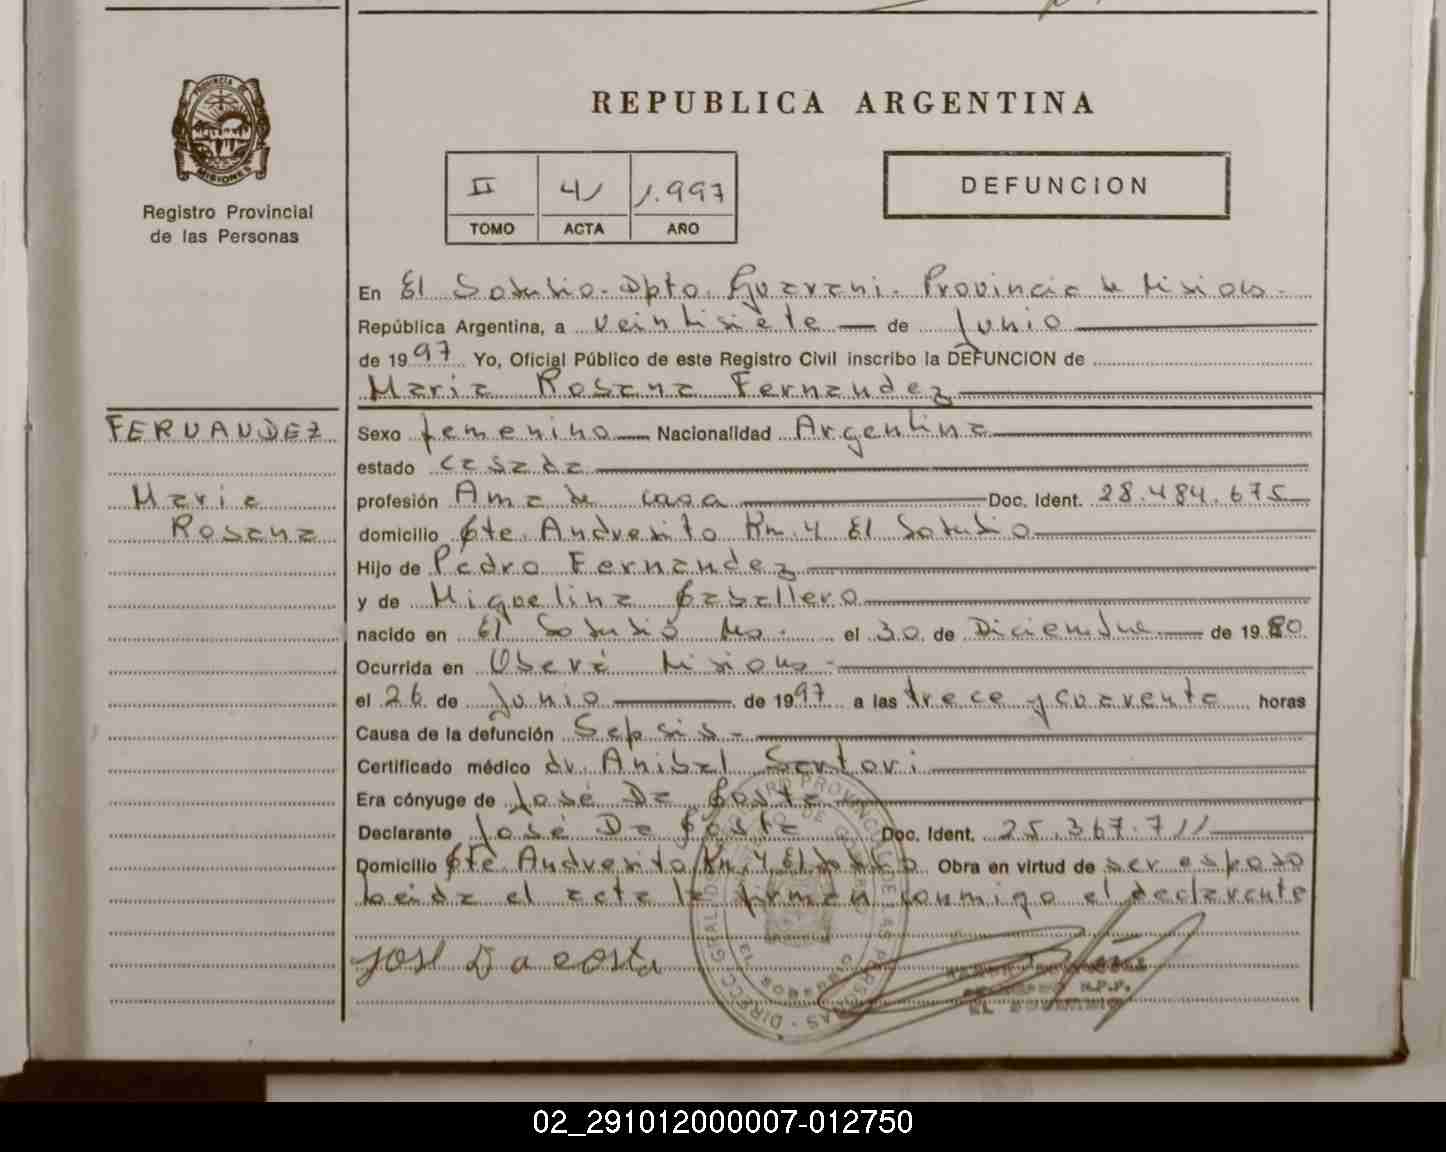 PROVINCIA DE
MISIONES
Registro Provincial
de las Personas
REPUBLICA ARGENTINA
II 41 1.997
TOMO ACTA AÑO
DEFUNCION
En El Soberbio - Dpto. Guarani - Provincia de Misiones -
República Argentina, a veintisiete de Junio
de 1997 Yo, Oficial Público de este Registro Civil inscribo la DEFUNCION de
Maria Rosana Fernandez
FERNANDEZ
Maria
Rosana
Sexo femenino Nacionalidad Argentina
estado casada
profesión Ama de casa Doc. Ident. 28.484.675
domicilio Cte. Andresito Km. 4 El Soberbio
Hijo de Pedro Fernandez
y de Miguelina Caballero
nacido en El Soberbio Mes. el 30 de Diciembre de 1980
Ocurrida en Oberá Misiones -
el 26 de Junio de 1997 a las trece y cuarenta horas
Causa de la defunción Sepsis -
Certificado médico dr. Anibal Sartori
Era cónyuge de José Da Costa
Declarante José Da Costa Doc. Ident. 25.367.711
Domicilio Cte. Andresito Km. 4 El Soberbio Obra en virtud de ser esposo
Leida el acta la firman conmigo el declarante
Jose Da costa
EL SOBERBIO
02_291012000007-012750